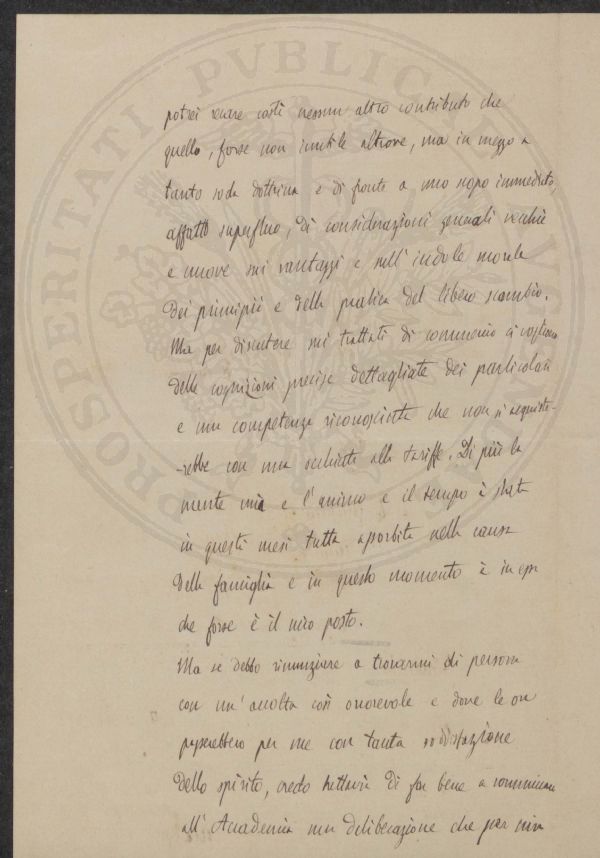 potrei recare costì nessun altro contributo che
quello, forse non inutile altrove, ma in mezzo a
tanta soda dottrina e di fronte a uno scopo immediato,
affatto superfluo, di considerazioni generali vecchie
e nuove sui vantaggi e sull'indole morale
dei principii e della pratica del libero scambio.
Ma per discutere sui trattati di commercio ci vogliono
delle cognizioni precise dettagliate dei particolari
e una competenza riconosciuta che non si acquiste-
-rebbe con una occhiata alle tariffe. Di più la
mente mia e l'animo e il tempo è stata
in questi mesi tutta assorbita nella causa
della famiglia e in questo momento è in essa
che forse è il mio posto.
Ma se debbo rinunziare a trovarmi di persona
con un'accolta così onorevole e dove le ore
passerebbero per me con tanta soddisfazione
dello spirito, credo tuttavia di far bene a comunicare
all'Accademia una deliberazione che per mia
PROSPERITATI PVBLICAE